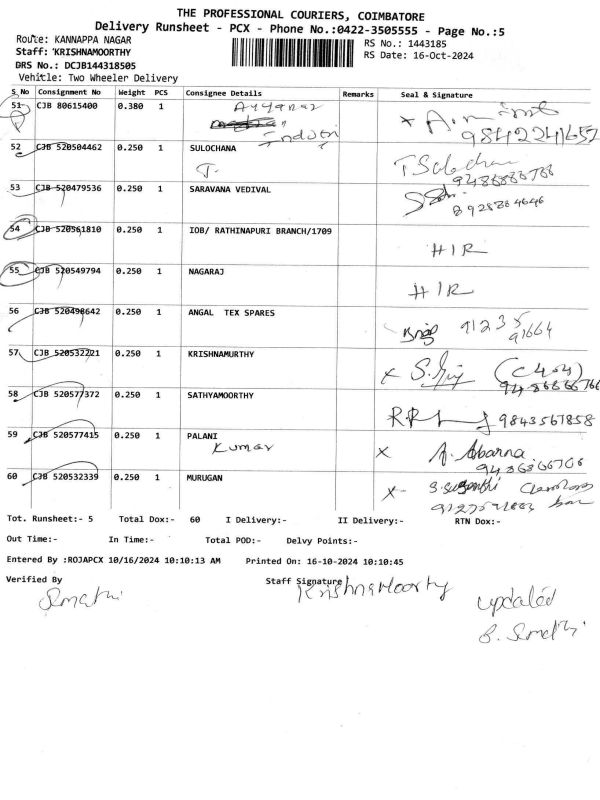 THE PROFESSIONAL COURIERS, COIMBATORE
Delivery Runsheet - PCX - Phone No.:0422-3505555 - Page No.:5
Route: KANNAPPA NAGAR
RS No.: 1443185
Staff: 'KRISHNAMOORTHY
RS Date: 16-Oct-2024
DRS No.: DCJB144318505
Vehicle: Two Wheeler Delivery
S No Consignment No Weight PCS Consignee Details Remarks Seal & Signature
51 CJB 80615400 0.380 1 Ayyanar
9842241657
52 CJB 520504462 0.250 1 SULOCHANA
T.
53 CJB 520479536 0.250 1 SARAVANA VEDIVAL
54 CJB 520561810 0.250 1 IOB/ RATHINAPURI BRANCH/1709
HIR
55 CJB 520549794 0.250 1 NAGARAJ
HIR
56 CJB 520498642 0.250 1 ANGAL TEX SPARES
91235
91664
57 CJB 520532221 0.250 1 KRISHNAMURTHY
58 CJB 520577372 0.250 1 SATHYAMOORTHY
9843567858
59 CJB 520577415 0.250 1 PALANI X A. Abarna
Kumar
60 CJB 520532339 0.250 1 MURUGAN
Tot. Runsheet:- 5 Total Dox:- 60 I Delivery:- II Delivery:- RTN Dox:-
Out Time:- In Time:- Total POD:- Delvy Points:-
Entered By :ROJAPCX 10/16/2024 10:10:13 AM Printed On: 16-10-2024 10:10:45
Verified By Staff Signature
KrishnaMoorty
updated